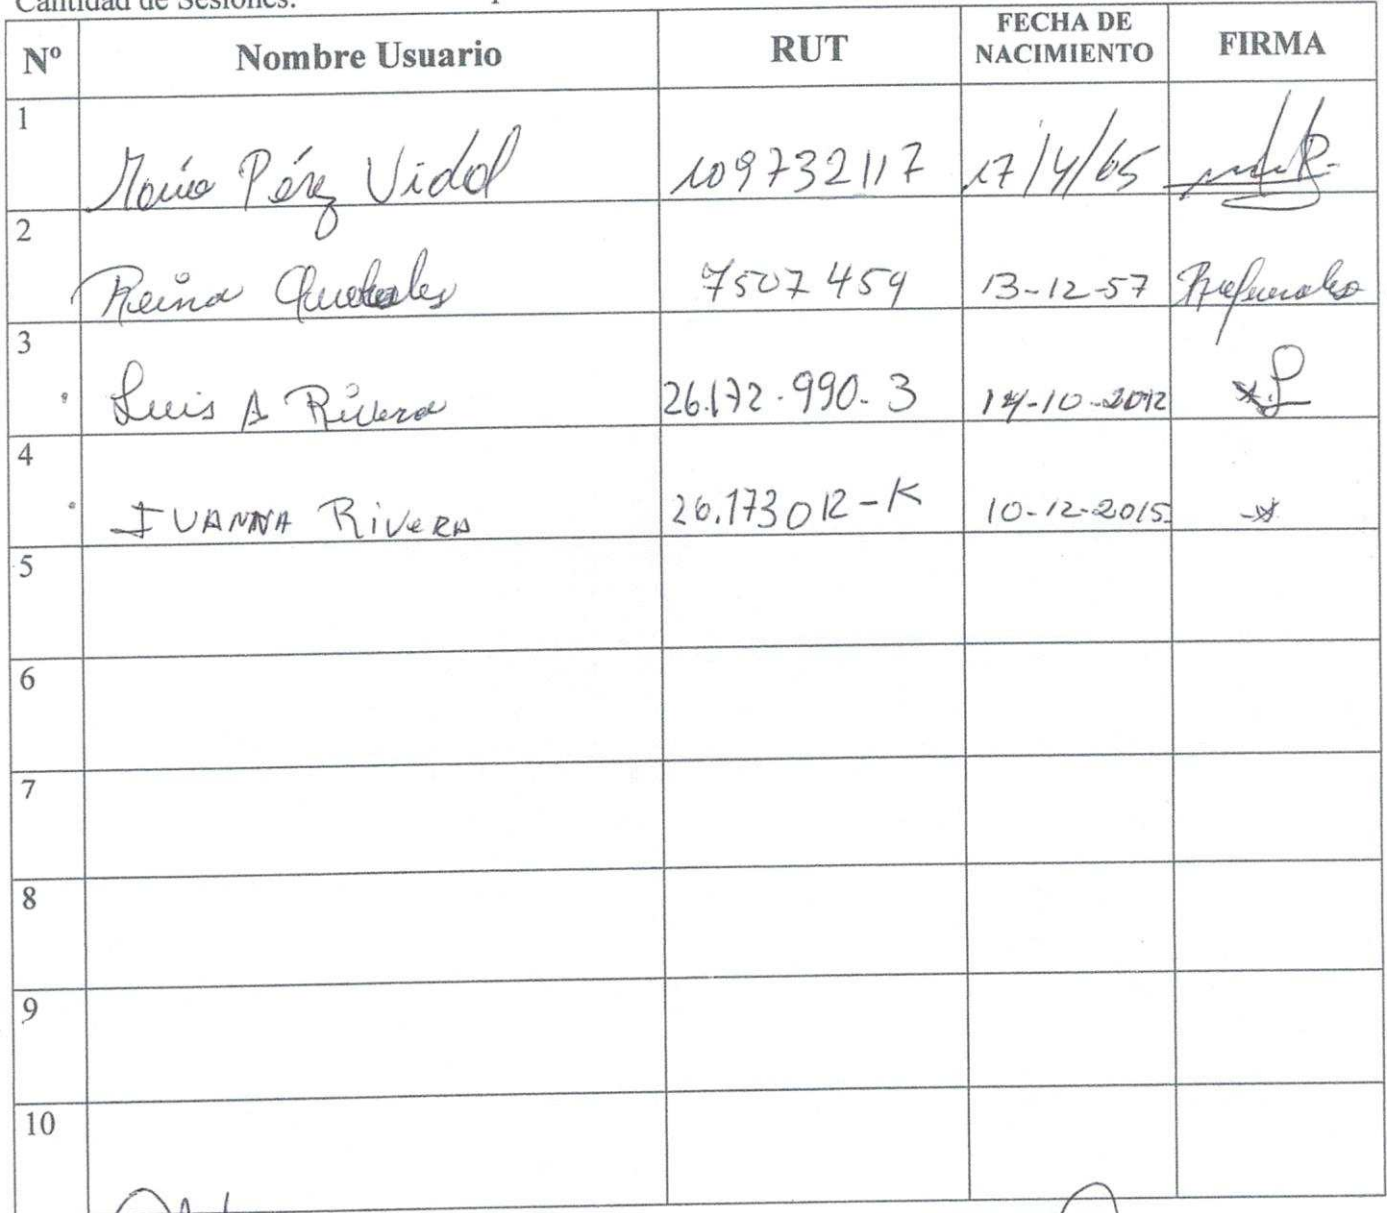 Cantidad de Sesiones:
Nº Nombre Usuario RUT FECHA DE NACIMIENTO FIRMA
1 María Pérez Vidal 109732117 17/4/65
2 Reina 7507459 13-12-57
3 Luis A Rivera 26.172.990-3 14-10-2012
4 IVANNA RiVERA 26.173012-K 10-12-2015
5
6
7
8
9
10